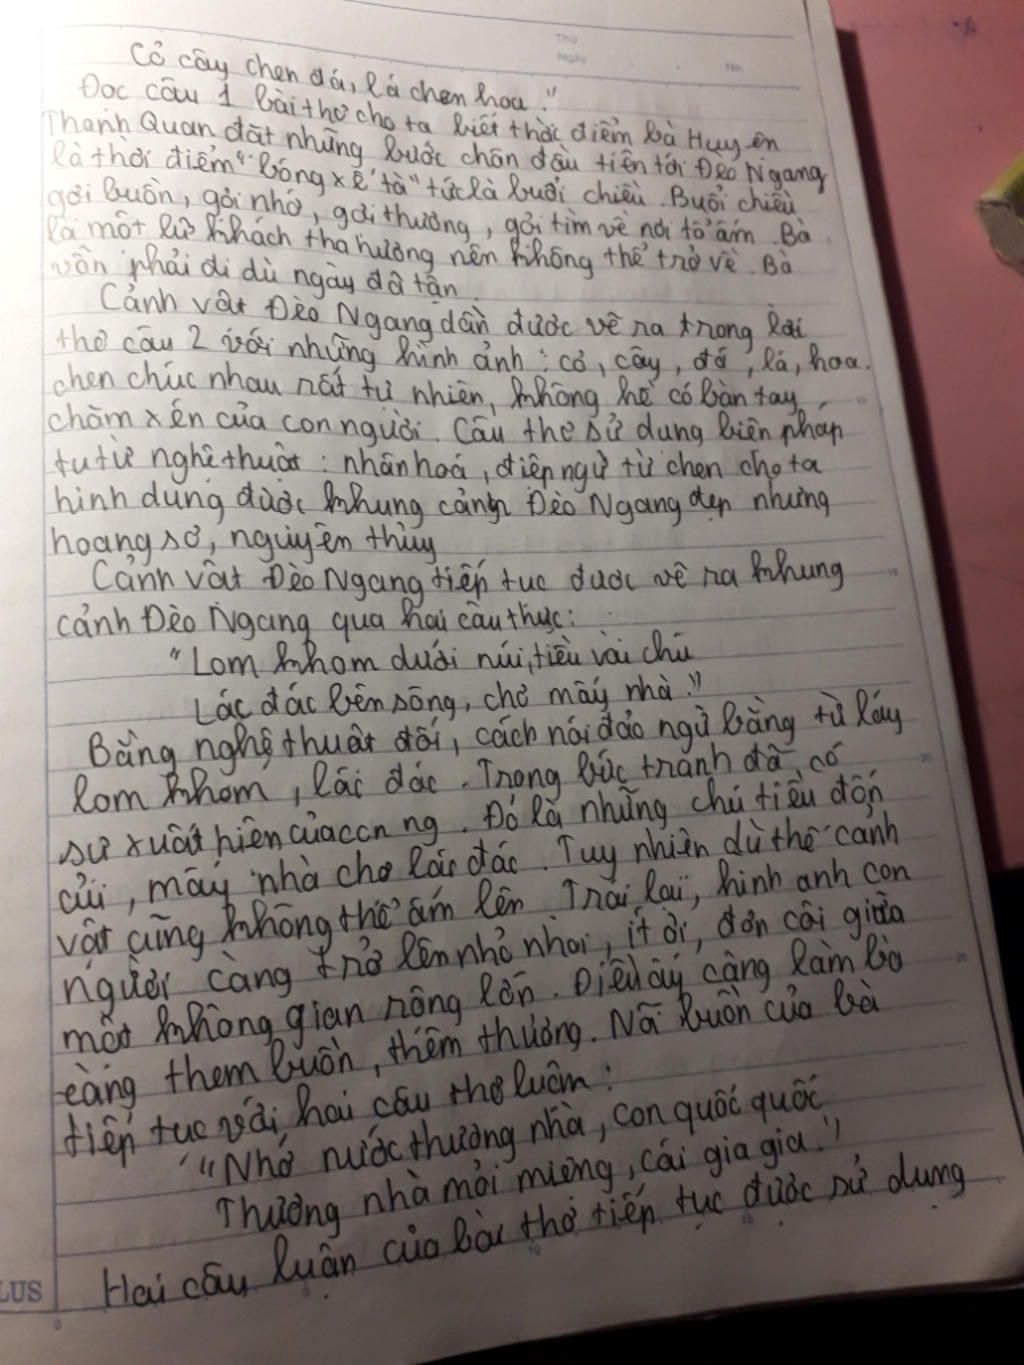 Thứ
Ngày No.
Cỏ cây chen đá, lá chen hoa."
Đọc câu 1 bài thơ cho ta biết thời điểm bà Huyện
Thanh Quan đặt những bước chân đầu tiên tới Đèo Ngang
là thời điểm "bóng xế tà" tức là buổi chiều. Buổi chiều
gợi buồn, gợi nhớ, gợi thương, gợi tìm về nơi tổ ấm. Bà
là một lữ khách tha hương nên không thể trở về. Bà
vẫn phải đi dù ngày đã tận.
Cảnh vật Đèo Ngang dần được vẽ ra trong lời
thơ câu 2 với những hình ảnh: cỏ, cây, đá, lá, hoa.
chen chúc nhau rất tự nhiên, không hề có bàn tay
chăm xén của con người. Câu thơ sử dụng biện pháp
tu từ nghệ thuật: nhân hoá, điệp ngữ từ chen cho ta
hình dung được khung cảnh Đèo Ngang đẹp nhưng
hoang sơ, nguyên thủy
Cảnh vật Đèo Ngang tiếp tục được vẽ ra khung
cảnh Đèo Ngang qua hai câu thực:
"Lom khom dưới núi, tiều vài chú
Lác đác bên sông, chợ mấy nhà."
Bằng nghệ thuật đối, cách nói đảo ngữ bằng từ láy
lom khom, lác đác. Trong bức tranh đã có
sự xuất hiện của con ng. Đó là những chú tiều đốn
củi, mấy nhà chợ lác đác. Tuy nhiên dù thế cảnh
vật cũng không thể ấm lên. Trái lại, hình anh con
người càng trở lên nhỏ nhoi, ít ỏi, đơn côi giữa
một không gian rộng lớn. Điều ấy càng làm bà
càng them buồn, thêm thương. Nỗi buồn của bà
tiếp tục với hai câu thơ luận:
"Nhớ nước thương nhà, con quốc quốc
Thương nhà mỏi miệng, cái gia gia."
Hai câu luận của bài thơ tiếp tục được sử dụng
LUS